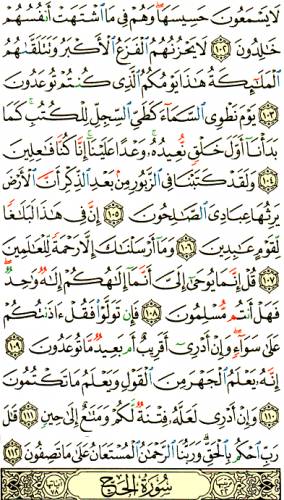 لَا يَسْمَعُونَ حَسِيسَهَا ۖ وَهُمْ فِى مَا ٱشْتَهَتْ أَنفُسُهُمْ
خَٰلِدُونَ ١٠٢ لَا يَحْزُنُهُمُ ٱلْفَزَعُ ٱلْأَكْبَرُ وَتَتَلَقَّىٰهُمُ
ٱلْمَلَٰٓئِكَةُ هَٰذَا يَوْمُكُمُ ٱلَّذِى كُنتُمْ تُوعَدُونَ
١٠٣ يَوْمَ نَطْوِى ٱلسَّمَآءَ كَطَىِّ ٱلسِّجِلِّ لِلْكُتُبِ ۚ كَمَا
بَدَأْنَآ أَوَّلَ خَلْقٍ نُّعِيدُهُۥ ۚ وَعْدًا عَلَيْنَآ ۚ إِنَّا كُنَّا فَٰعِلِينَ
١٠٤ وَلَقَدْ كَتَبْنَا فِى ٱلزَّبُورِ مِنۢ بَعْدِ ٱلذِّكْرِ أَنَّ ٱلْأَرْضَ
يَرِثُهَا عِبَادِىَ ٱلصَّٰلِحُونَ ١٠٥ إِنَّ فِى هَٰذَا لَبَلَٰغًا
لِّقَوْمٍ عَٰبِدِينَ ١٠٦ وَمَآ أَرْسَلْنَٰكَ إِلَّا رَحْمَةً لِّلْعَٰلَمِينَ
١٠٧ قُلْ إِنَّمَا يُوحَىٰٓ إِلَىَّ أَنَّمَآ إِلَٰهُكُمْ إِلَٰهٌ وَٰحِدٌ ۖ
فَهَلْ أَنتُم مُّسْلِمُونَ ١٠٨ فَإِن تَوَلَّوْا۟ فَقُلْ ءَاذَنتُكُمْ
عَلَىٰ سَوَآءٍ ۖ وَإِنْ أَدْرِىٓ أَقَرِيبٌ أَم بَعِيدٌ مَّا تُوعَدُونَ ١٠٩
إِنَّهُۥ يَعْلَمُ ٱلْجَهْرَ مِنَ ٱلْقَوْلِ وَيَعْلَمُ مَا تَكْتُمُونَ
١١٠ وَإِنْ أَدْرِى لَعَلَّهُۥ فِتْنَةٌ لَّكُمْ وَمَتَٰعٌ إِلَىٰ حِينٍ ١١١ قَٰلَ
رَبِّ ٱحْكُم بِٱلْحَقِّ ۗ وَرَبُّنَا ٱلرَّحْمَٰنُ ٱلْمُسْتَعَانُ عَلَىٰ مَا تَصِفُونَ ١١٢
سُورَةُ الْحَجِّ